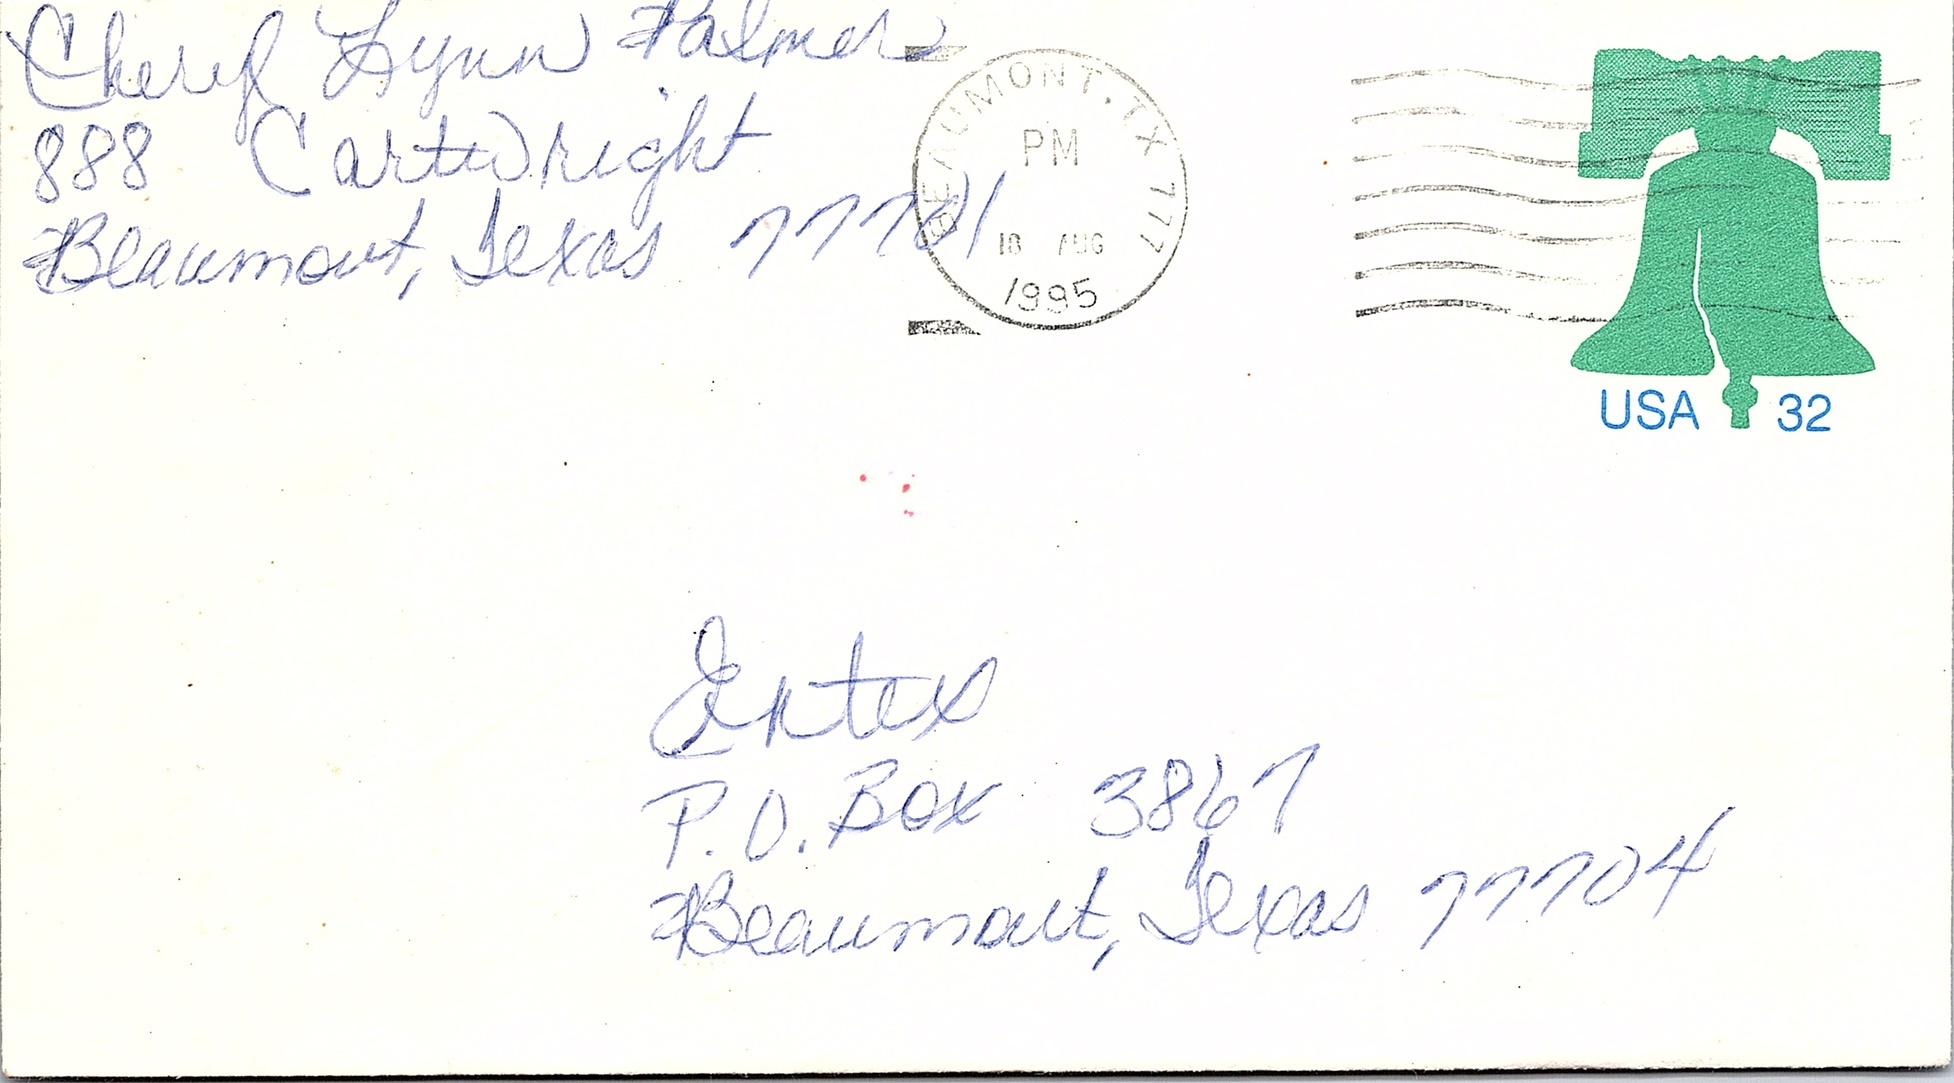 Cheryl Lynn Palmer
888 Cartwright
Beaumont, Texas 77701
BEAUMONT, TX 777
PM
AUG
1995
USA 32
Entex
P.O. Box 3867
Beaumont, Texas 77704